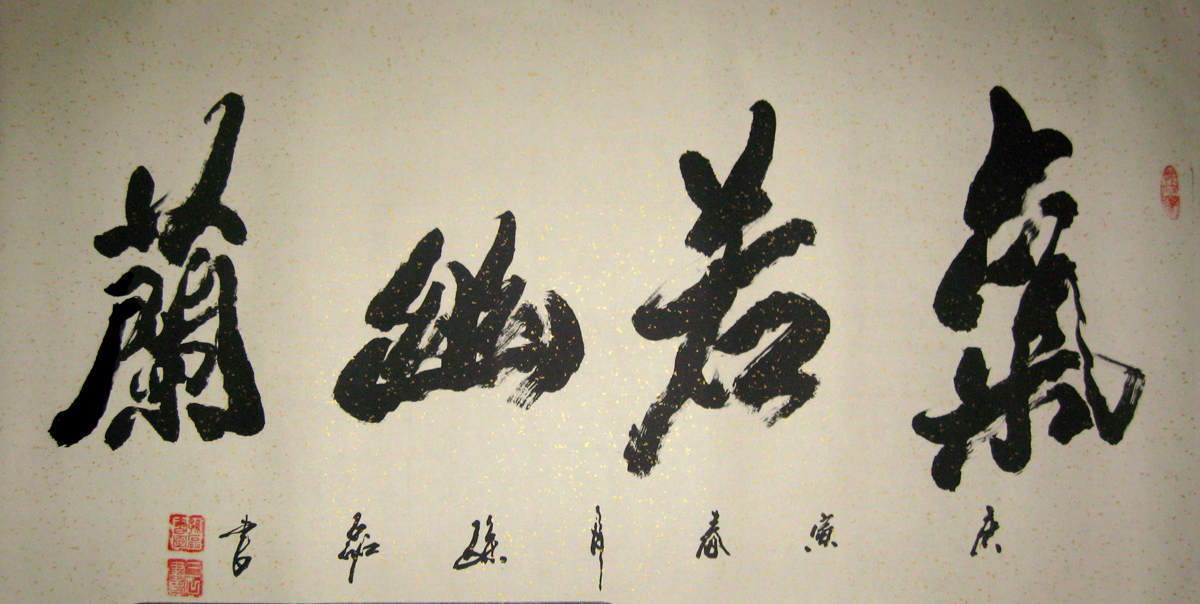 氣若幽蘭
庚寅春月書